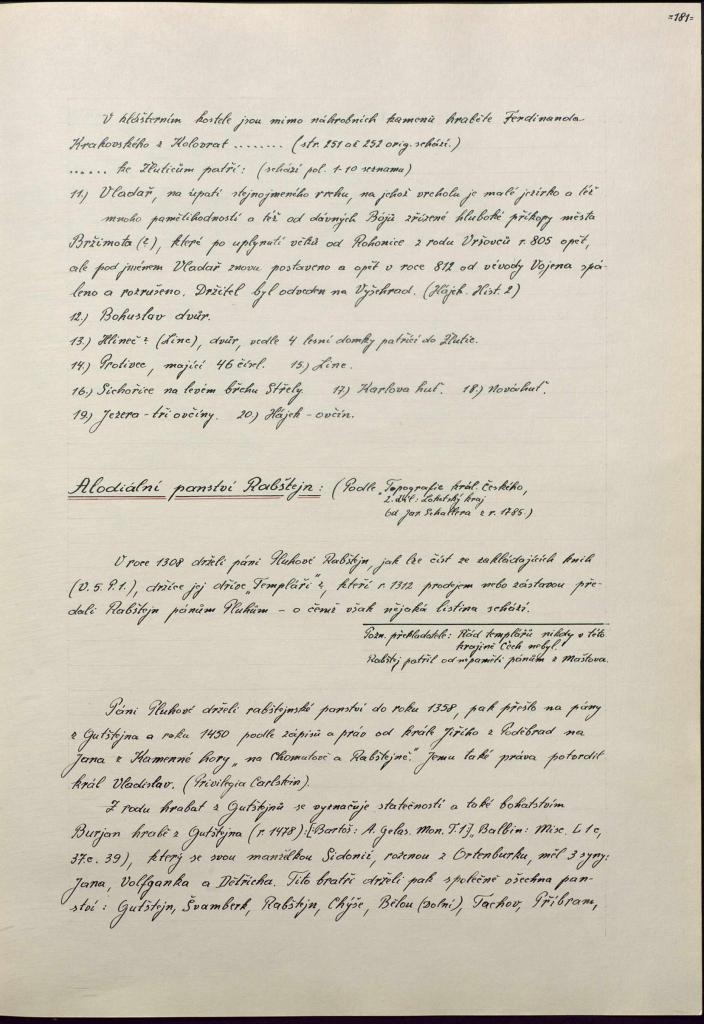 =181=
V klášterním kostele jsou mimo náhrobních kamenů hraběte Ferdinanda
Krakovského z Kolovrat ........ (str. 251 až 252 orig. schází.)
...... ke Žluticům patří: (schází pol. 1-10 seznamu)
11.) Vladař, na úpatí stejnojmeného vrchu, na jehož vrcholu je malé jezírko a též
mnoho pamětihodností a též od dávných Bójů zřízené hluboké příkopy města
Bržimota (?), které po uplynutí věků od Rohonice z rodu Vršovců r. 805 opět,
ale pod jménem Vladař znovu postaveno a opět v roce 812 od vévody Vojena spá-
leno a rozrušeno. Držitel byl odveden na Vyšehrad. (Hájek. Hist. 2)
12.) Bohuslav dvůr.
13.) Hlineč ? (Linc), dvůr, vedle 4 lesní domky patřící do Žlutic.
14.) Protivec, mající 46 čísel. 15.) Linc.
16.) Sichořice na levém břehu Střely. 17.) Karlova huť. 18.) Nová huť.
19.) Jezera - tři ovčíny. 20.) Hájek - ovčín.
Alodiální panství Rabštejn: (Podle „Topografie král. Českého,
2. díl: Loketský kraj
od Jar. Schallera z r. 1785.)
V roce 1308 drželi páni Pluhové Rabštejn, jak lze číst ze zakládajících knih
(V. 5. P. 1.), držíce jej dříve „Templáři" ?, kteří r. 1312 prodejem nebo zástavou pře-
dali Rabštejn pánům Pluhům - o čemž však nějaká listina schází.
Pozn. překladatele: Řád templářů nikdy v této
krajině Čech nebyl.
Rabštej patřil od nepaměti pánům z Mašťova.
Páni Pluhové drželi rabštejnské panství do roku 1358, pak přešlo na pány
z Gutštejna a roku 1450 podle zápisů a práv od krále Jiřího z Poděbrad na
Jana z Kamenné hory „na Chomutově a Rabštejně." Jemu také práva potvrdil
král Vladislav. (Privilegia Carlstein).
Z rodu hrabat z Gutštejnů se vyznačuje statečností a také bohatstvím
Burjan hrabě z Gutštejna (r. 1478): [Bartoš: A. Gelas. Mon. T. 1], Balbin: Misc. L 1 c,
37. c. 39), který se svou manželkou Sidonií, rozenou z Ortenburku, měl 3 syny:
Jana, Volfganka a Dětřicha. Tito bratři drželi pak společně všechna pan-
ství: Gutštejn, Švamberk, Rabštejn, Chýše, Bělou (Dolní), Tachov, Příbram,